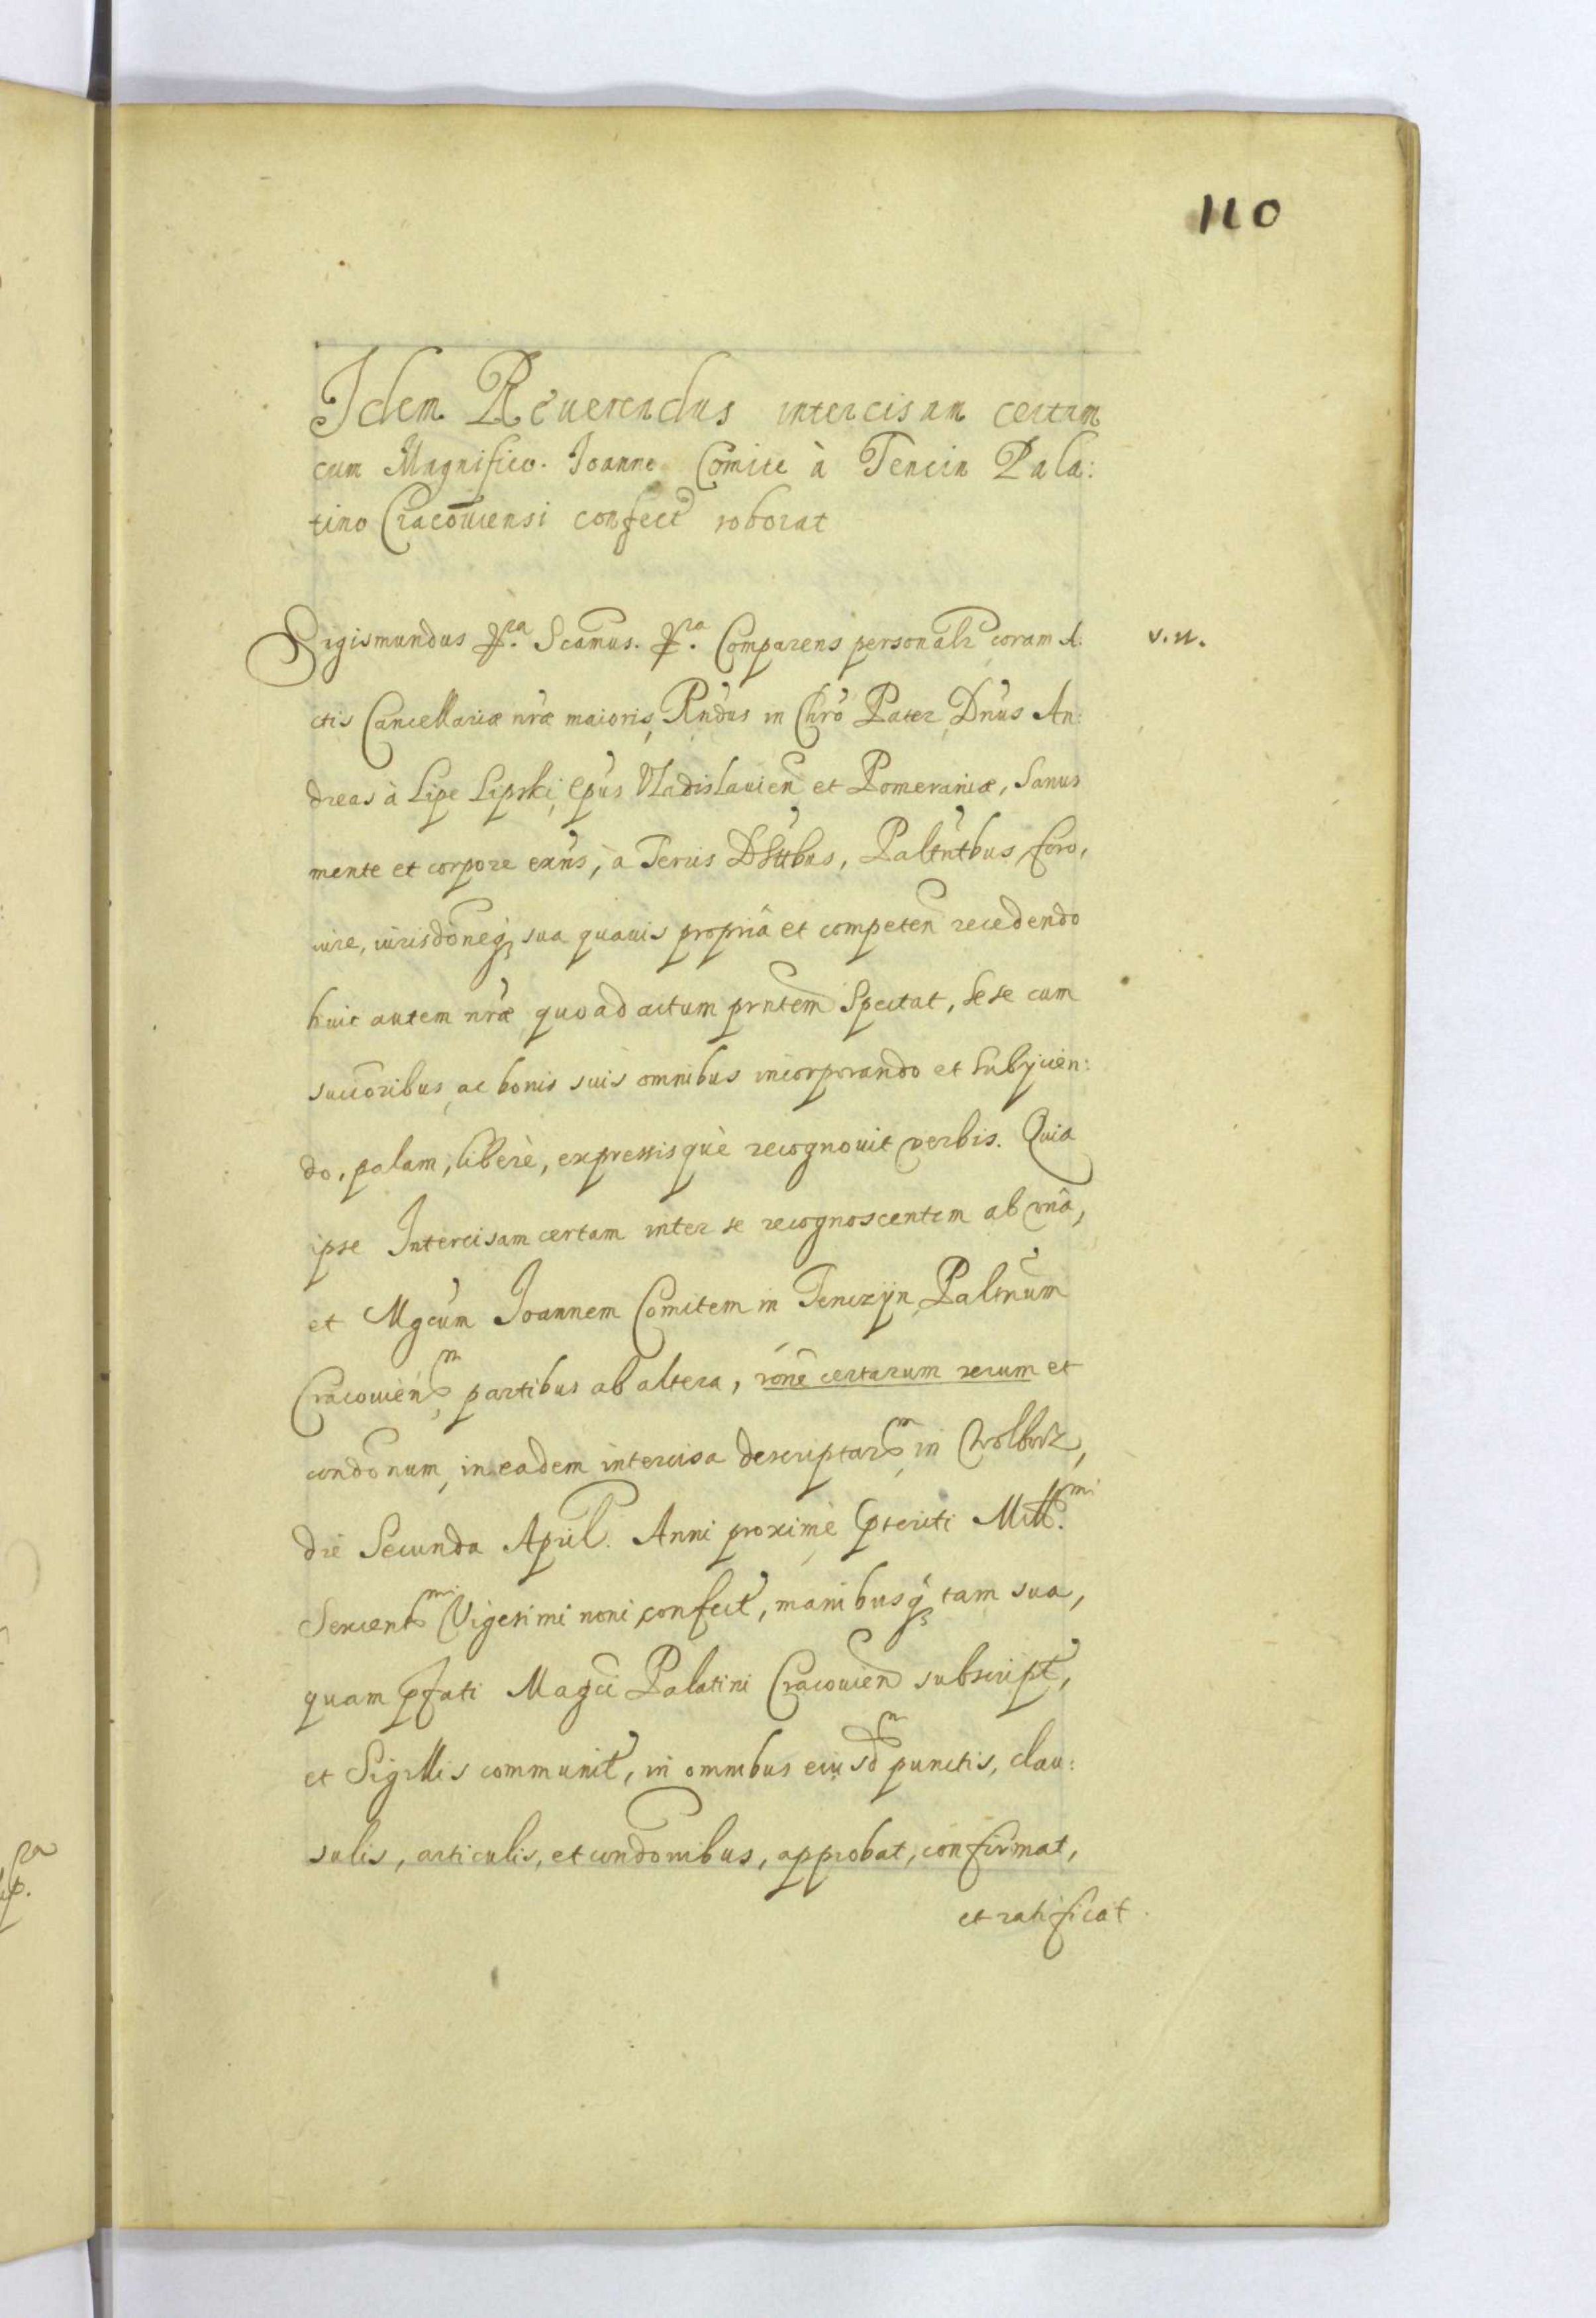 110
Idem Reuerendus intercisam certam
cum Magnifico. Ioanne Comite à Tencin Pala:
tino Cracouiensi confect roborat
Sigismundus &ra. Scamus. &ra. Comparens personalr coram A:
v. n.
ctis Cancellariæ nræ maioris, Rndus in Chro Pater Dnus An:
dreas à Lipe Lipski, Epus Vladislauien et Pomeraniæ, Sanus
mente et corpore exns, à Terris Dstrbus, Paltntbus, foro,
iure, iurisdoneq sua quauis propriâ et competen recedendo
huic autem nræ quoad actum prntem Spectat, sese cum
succoribus, ac bonis suis omnibus incorporando et Subijcien:
do, palam, liberè, expressisquè recognouit verbis. Quia
ipse Intercisam certam inter se recognoscentem ab vna,
et Mgcum Ioannem Comitem in Tenczijn Paltnum
Cracouienm, partibus ab altera, rone certarum rerum et
condonum, in eadem intercisa descriptarm, in Wolborz,
die Secunda April. Anni proximè pteriti Mill.mi
Sexcentmi Vigesimi noni, confect, manibusq tam sua,
quam pfati Magci Palatini Cracouien subscript,
et Sigillis communit, in omnibus eiusdm punctis, clau:
sulis, articulis, et condonibus, approbat, confirmat,
et ratificat.